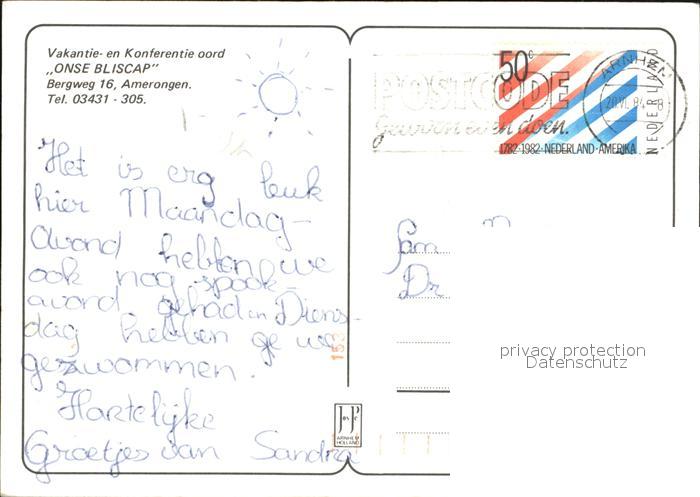 Vakantie- en Konferentie oord
„ONSE BLISCAP"
Bergweg 16, Amerongen.
Tel. 03431 - 305.
Het is erg leuk
hier Maandag-
avond hebben we
ook nog spook-
avond gehad en Diens-
dag hebben ge we
gezwommen.
Hartelijke
Groetjes van Sandra
50c
POSTCODE
gewoon even doen.
1782·1982·NEDERLAND·AMERIKA
ARNHEM
NEDERLAND
Fam
Dr
privacy protection
Datenschutz
ARNHEM
HOLLAND